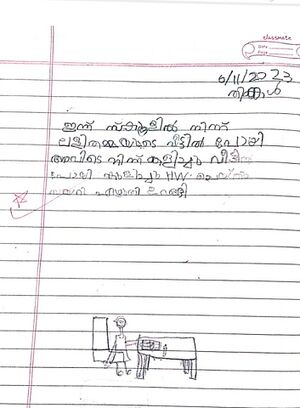 classmate
Date
Page
6/11/2023
തിങ്കൾ
ഇന്ന് സ്കൂളിൽ നിന്ന്
ലളിതമ്മയുടെ വീട്ടിൽ പോയി
അവിടെ നിന്ന് കളിച്ചു വീട്ടിൽ
പോയി കുളിച്ചു HW ചെയ്തു
എഴുതി